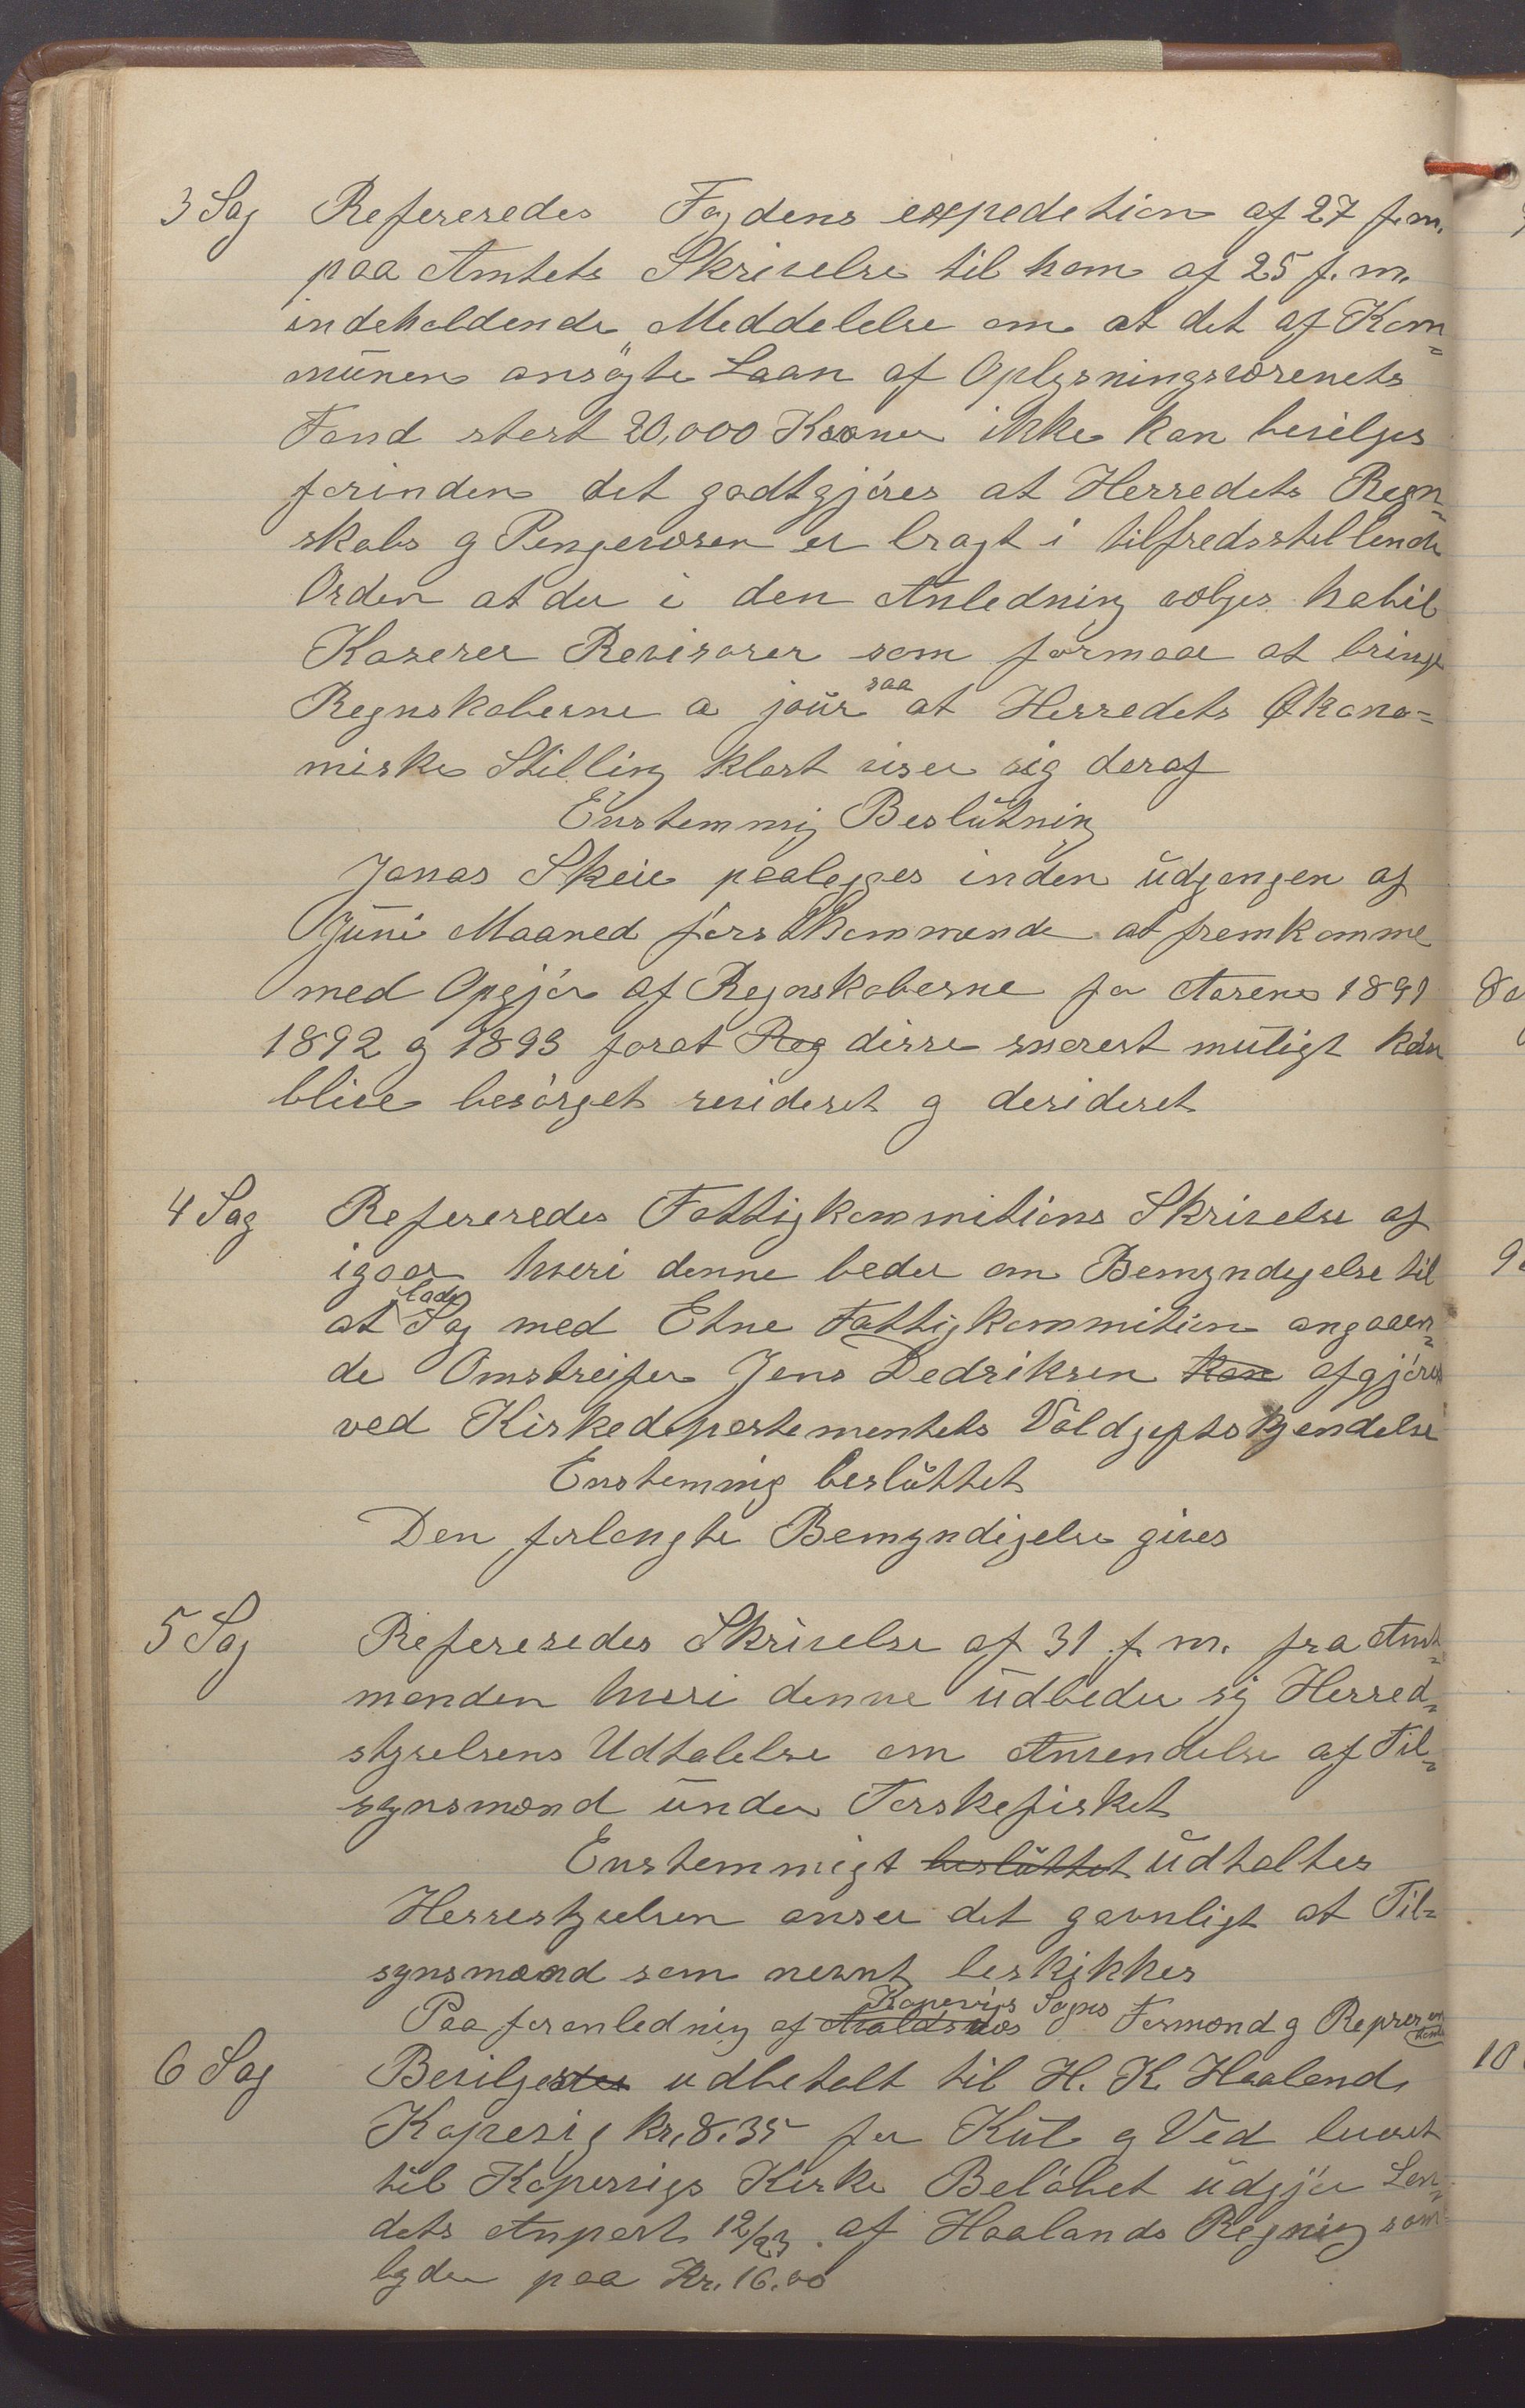 3 Sag Refereredes Fogdens expedetion af 27 f.m.
paa Amtets Skrivelse til ham af 25 f.m.
indeholdende Meddelelse om at det af Kom=
munen ansøgte Laan af Oplysningsvæsenets
Fond stort 20,000 Kroner ikke kan bevilges
forinden det godtgjøres at Herredets Regn=
skabs og Pengevæsen er bragt i tilfredsstillende
Orden at der i den Anledning vælges habil
Kaserer Revisorer som formaar at bringe
Regnskaberne a jour saa at Herredets Økono=
miske Stilling klart viser sig deraf
Enstemmig Beslutning
Jonas Skeie paalegges inden udgangen af
Juni Maaned førstkommende at fremkomme
med Opgjør af Regnskaberne for Aarene 1891
1892 og 1893 forat Reg disse snarest muligt kan
blive besørget revideret og desideret
4 Sag Refereredes Fattigkommitions Skrivelse af
igaar hvori denne beder om Bemyndigelse til
at lade Sag med Etne Fattigkommition angaaen=
de Omstreifer Jens Dedriksen kan afgjøres
ved Kirkedepartementets Voldgiftskjendelse
Enstemmig besluttet
Den forlangte Bemyndigelse gives
5 Sag Refereredes Skrivelse af 31 f.m. fra Amt=
manden hvori denne udbeder sig Herred=
styrelsens Udtalelse om Anvendelse af Til=
synsmænd under Torskefisket
Enstemmigt besluttet udtaltes
Herrestyrelsen anser det gavnligt at Til=
synsmænd som nevnt beskikkes
Paa foranledning af Avaldsnæs Kopervigs Sogns Formænd og Represen
tanter
6 Sag Bevilgestes udbetalt til H. K. Haaland
Kopervig kr. 8.35 for Kul og Ved leveret
til Kopervigs Kirke Beløbet udgjør Lan=
dets Anpart 12/23 af Haalands Regning som
lyder paa Kr. 16.00